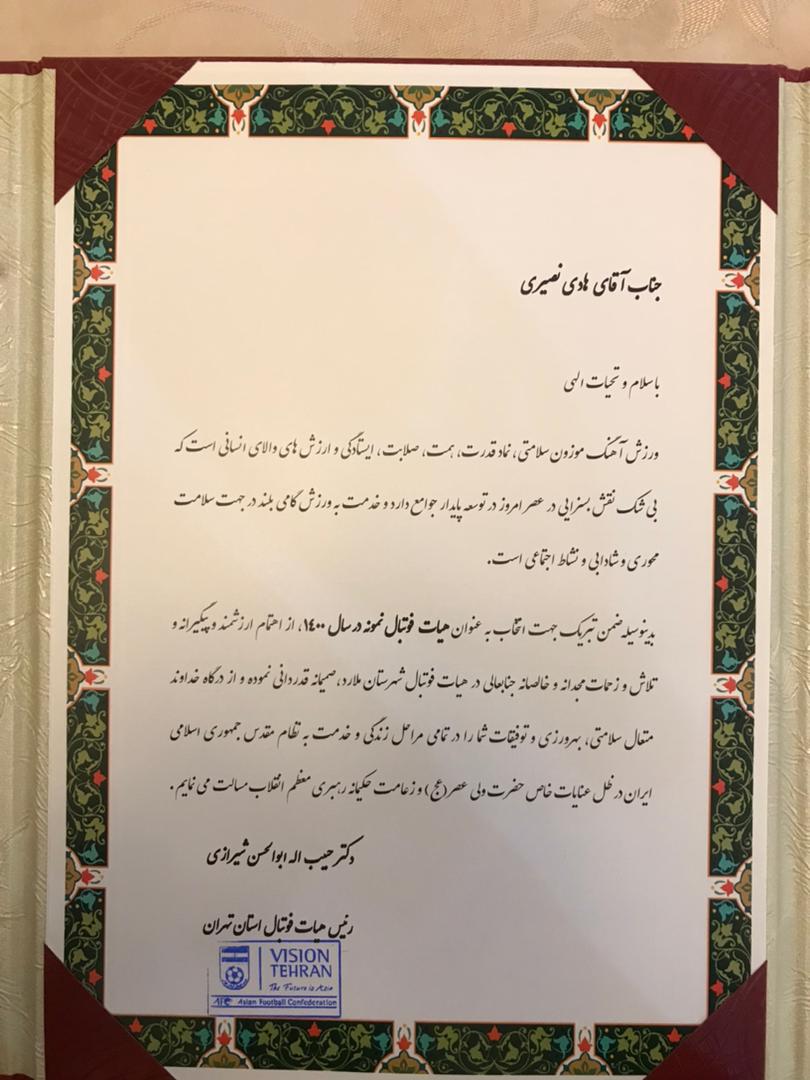 جناب آقای هادی نصیری
با سلام و تحیات الهی
ورزش آهنگ موزون سلامتی، نماد قدرت، همت، صلابت، ایستادگی و ارزش های والای انسانی است که
بی شک نقش بسزایی در عصر امروز در توسعه پایدار جوامع دارد و خدمت به ورزش گامی بلند در جهت سلامت
محوری و شادابی و نشاط اجتماعی است.
بدینوسیله ضمن تبریک جهت انتخاب به عنوان هیات فوتبال نمونه در سال ۱۴۰۰، از اهتمام ارزشمند و پیگیرانه و
تلاش و زحمات مجدانه و خالصانه جنابعالی در هیات فوتبال شهرستان ملارد، صمیمانه قدردانی نموده و از درگاه خداوند
متعال سلامتی، بهروزی و توفیقات شما را در تمامی مراحل زندگی و خدمت به نظام مقدس جمهوری اسلامی
ایران در ظل عنایات خاص حضرت ولی عصر (عج) و زعامت حکیمانه رهبری معظم انقلاب مسالت می نمایم.
دکتر حبیب اله ابوالحسن شیرازی
رئیس هیات فوتبال استان تهران
VISION
TEHRAN
The Future is Asia
AFC Asian Football Confederation